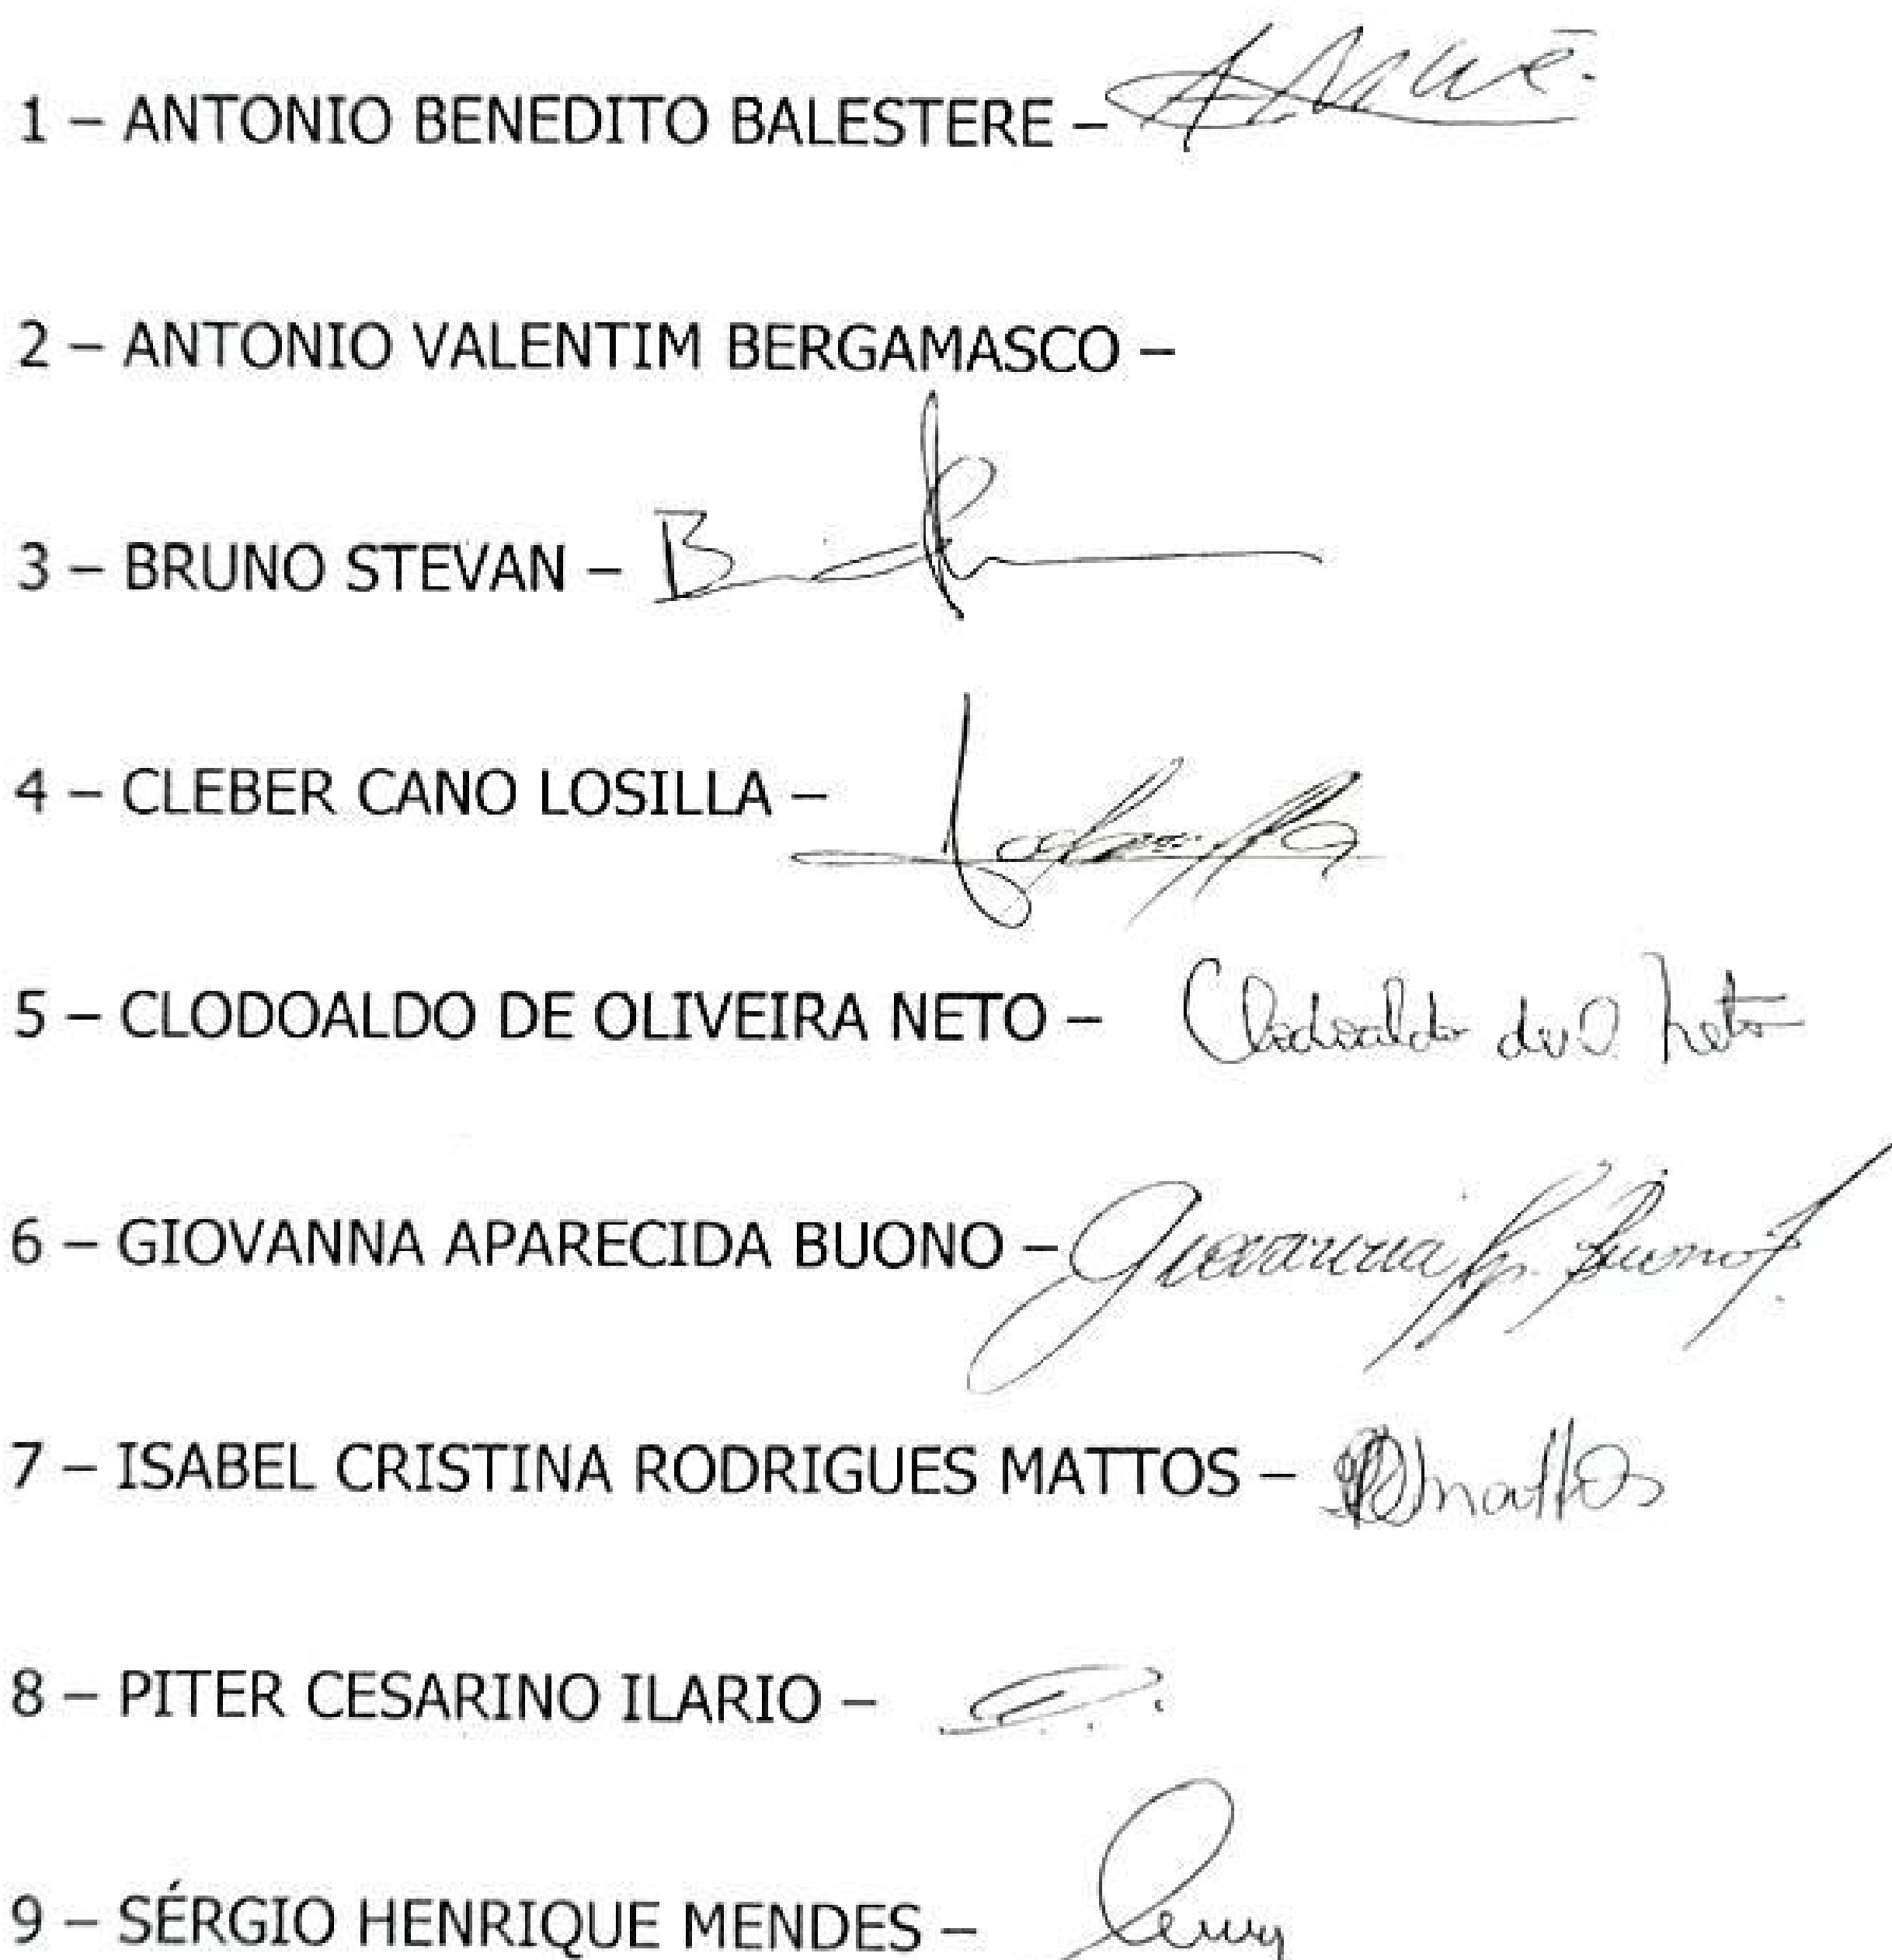 1 – ANTONIO BENEDITO BALESTERE –
2 – ANTONIO VALENTIM BERGAMASCO –
3 – BRUNO STEVAN –
4 – CLEBER CANO LOSILLA –
5 – CLODOALDO DE OLIVEIRA NETO – Clodoaldo de O. Neto
6 – GIOVANNA APARECIDA BUONO – Giovanna Ap. Buono
7 – ISABEL CRISTINA RODRIGUES MATTOS – mattos
8 – PITER CESARINO ILARIO –
9 – SÉRGIO HENRIQUE MENDES –